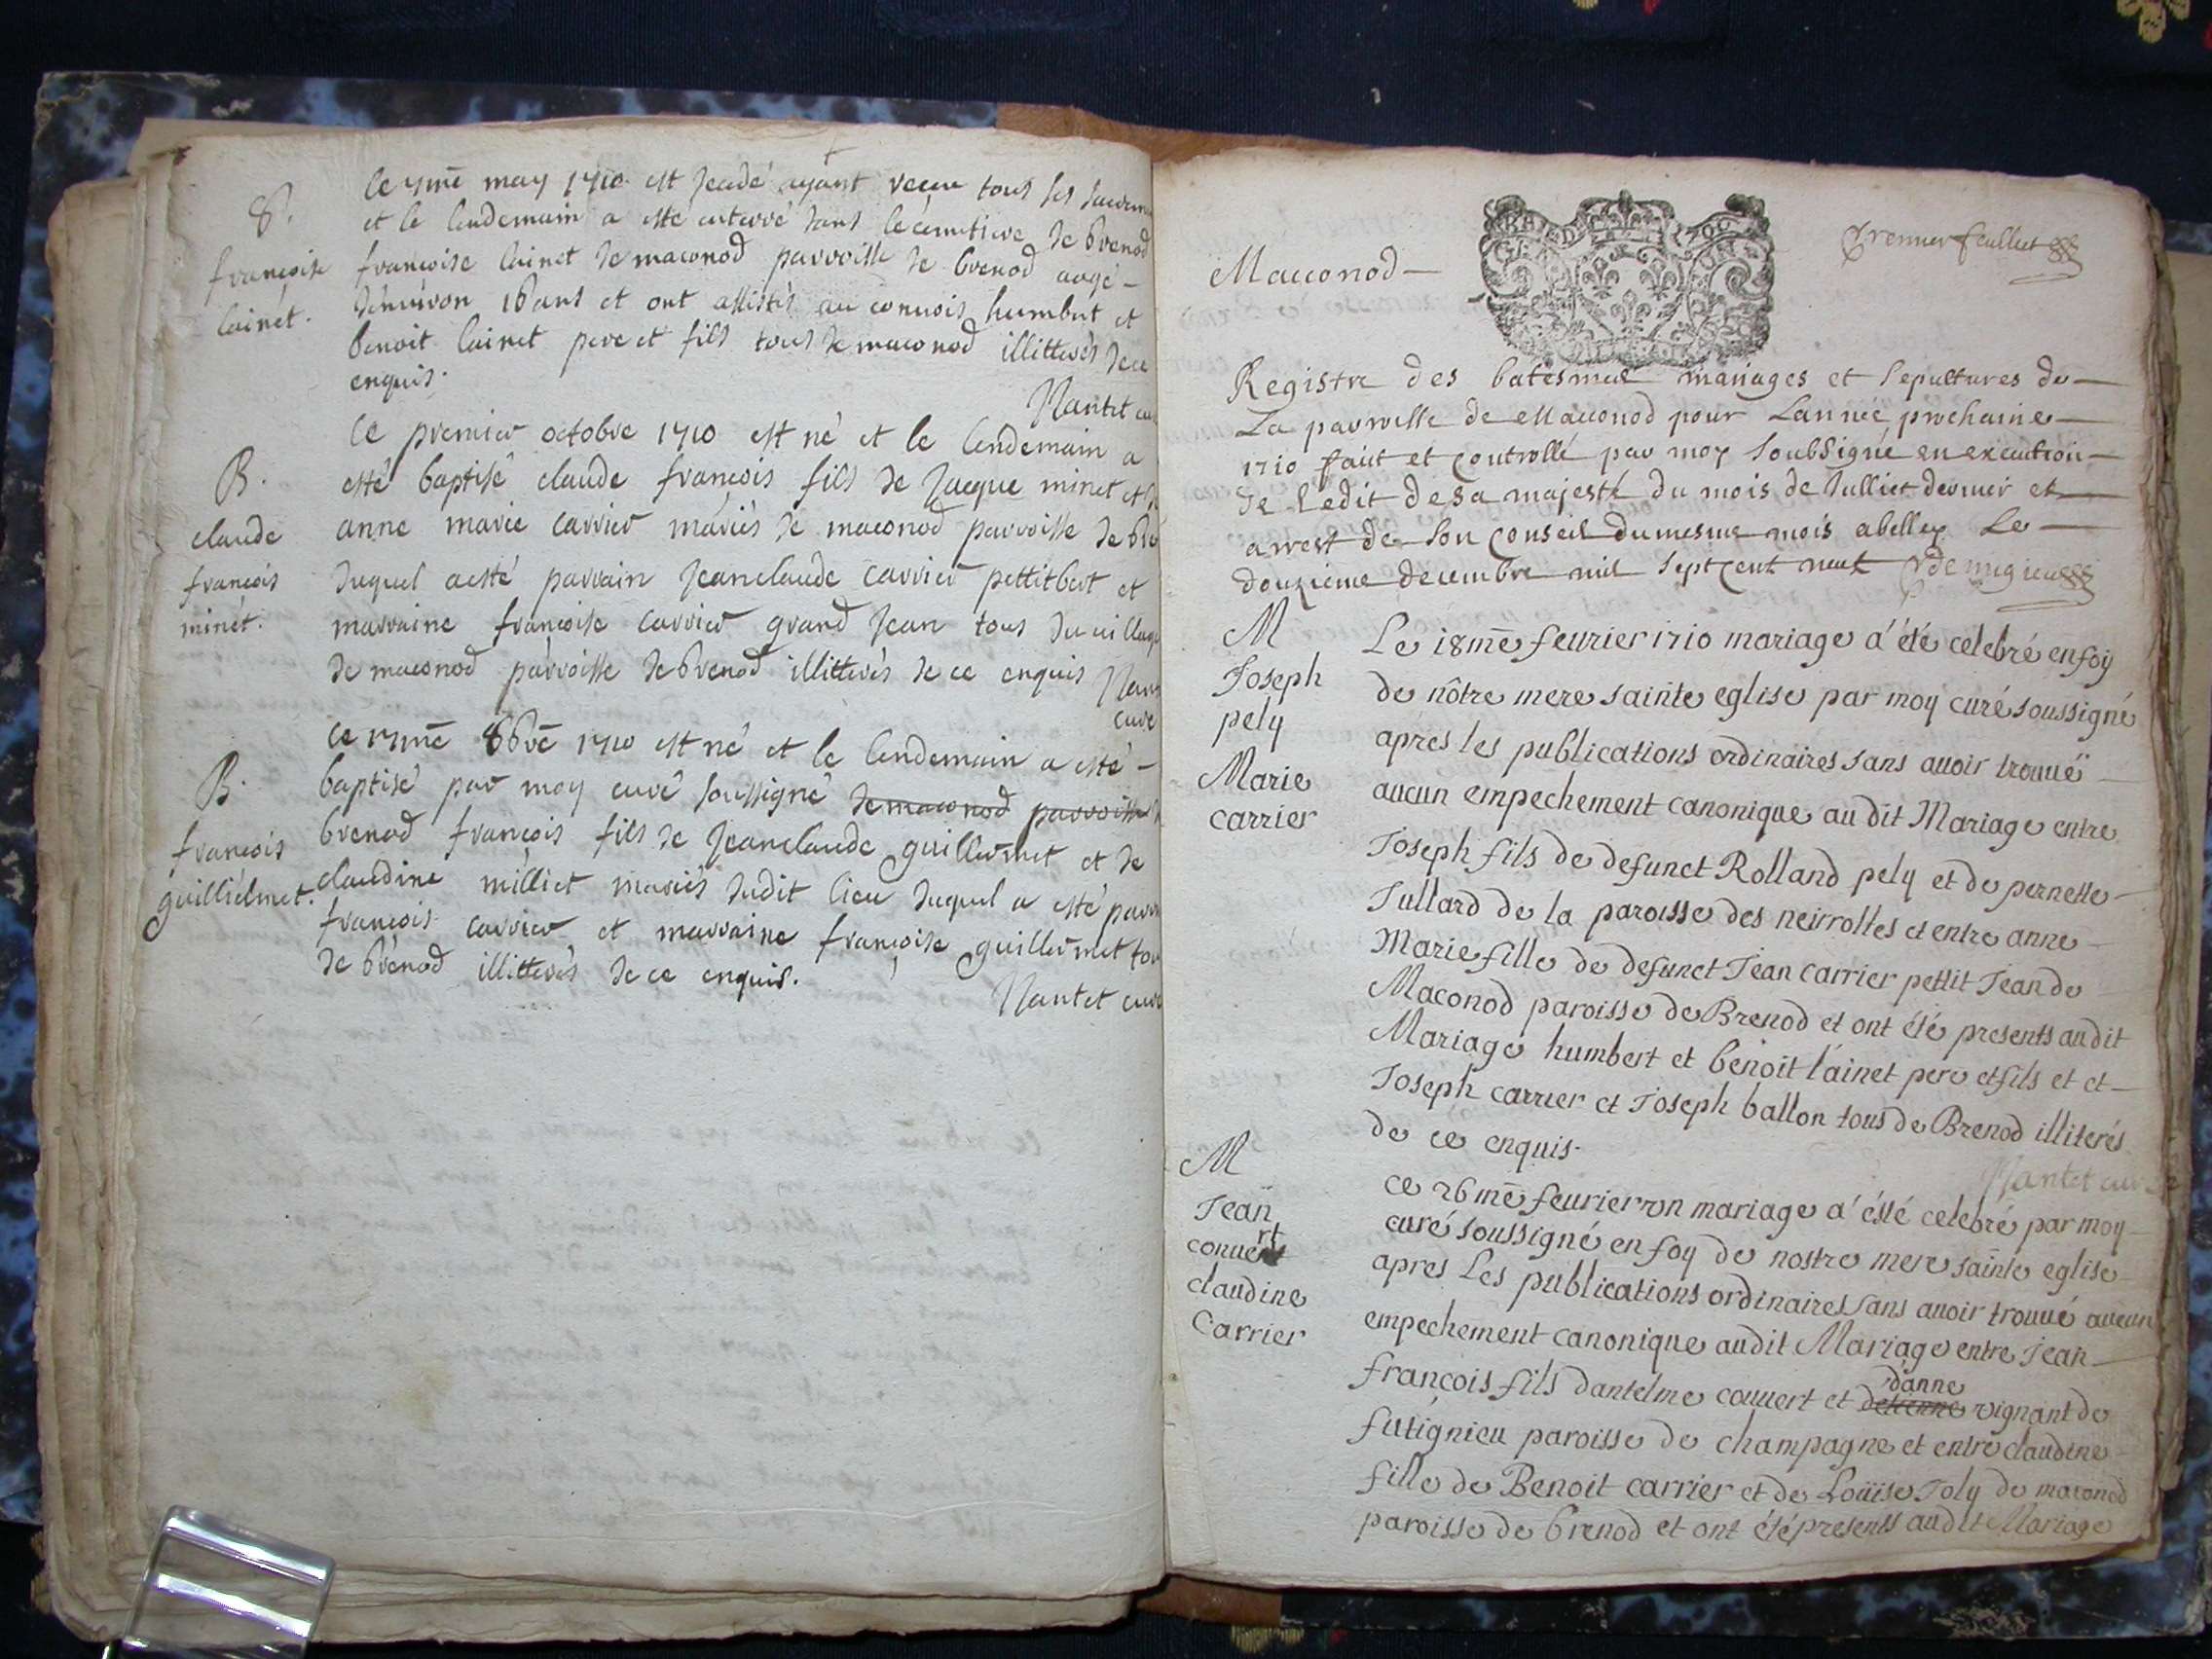 S.
françoise
lainét.
Ce 7me may 1710 est decedé ayant receu tous ses
et le lendemain a esté enterré dans le cemetiere de brenod
françoise lainet de maconod parroisse de brenod aagé
denuiron 16 ans et ont assistés au conuois humbert et
benoit lainet pere et fils tous de maconod illitterés de ce
enquis.
Nantet
B.
claude
françois
minét.
Ce premier octobre 1710 est né et le lendemain a
esté baptisé claude françois fils de Jacque minet et
anne marie carrier mariés de maconod parroisse de
duquel a esté parrain Jeanclaude carrier pettitbert et
marraine françoise carrier grand Jean tous du uillage
de maconod parroisse de brenod illitterés de ce enquis
curé
B.
françois
guilliélmet.
Ce 17me 8bre 1710 est né et le lendemain a esté
baptisé par moy curé soussigné de maconod parroisse
brenod françois fils de Jeanclaude guillermet et de
claudine milliet mariés dudit lieu duquel a esté
françois carrier et marraine françoise guillermet
de brénod illitterés de ce enquis.
Nantet curé
Maconod
Premier feuillet
Registre des batesmes mariages et sepultures de
La parroisse de Maconod pour Lannée prochaine
1710 fait et controllé par moy soubsigné en execution
de Ledit de sa majesté du mois de Julliet dernier et
arrest de son conseil du mesme mois a belley Le
douzieme decembre mil sept cent neuf
M
Joseph
pely
Marie
carrier
Le 18me feurier 1710 mariage a été celebré en foy
de nôtre mere sainte eglise par moy curé soussigné
apres les publications ordinaires sans auoir trouué
aucun empechement canonique au dit Mariage entre
Joseph fils de defunct Rolland pely et de pernette
Jullard de la paroisse des neirrolles et entre anne
Marie fille de defunct Jean carrier pettit Jean de
Maconod paroisse de Brenod et ont été presents au dit
Mariage humbert et benoit lainet pere et fils et et
Joseph carrier et Joseph ballon tous de Brenod illiterés
de ce enquis.
Nantet curé
M
Jean
conuert
claudine
Carrier
ce 26me feurier mariage a ésté celebré par moy
curé soussigné en foy de nostre mere sainte eglise
apres Les publications ordinaires sans auoir trouué aucun
empechement canonique audit Mariage entre Jean
françois fils dantelme conuert et d'anne vignant de
futignieu paroisse de champagne et entre claudine
fille de Benoit carrier et de Loüise Joly de maconod
paroisse de brenod et ont été presents audit Mariage